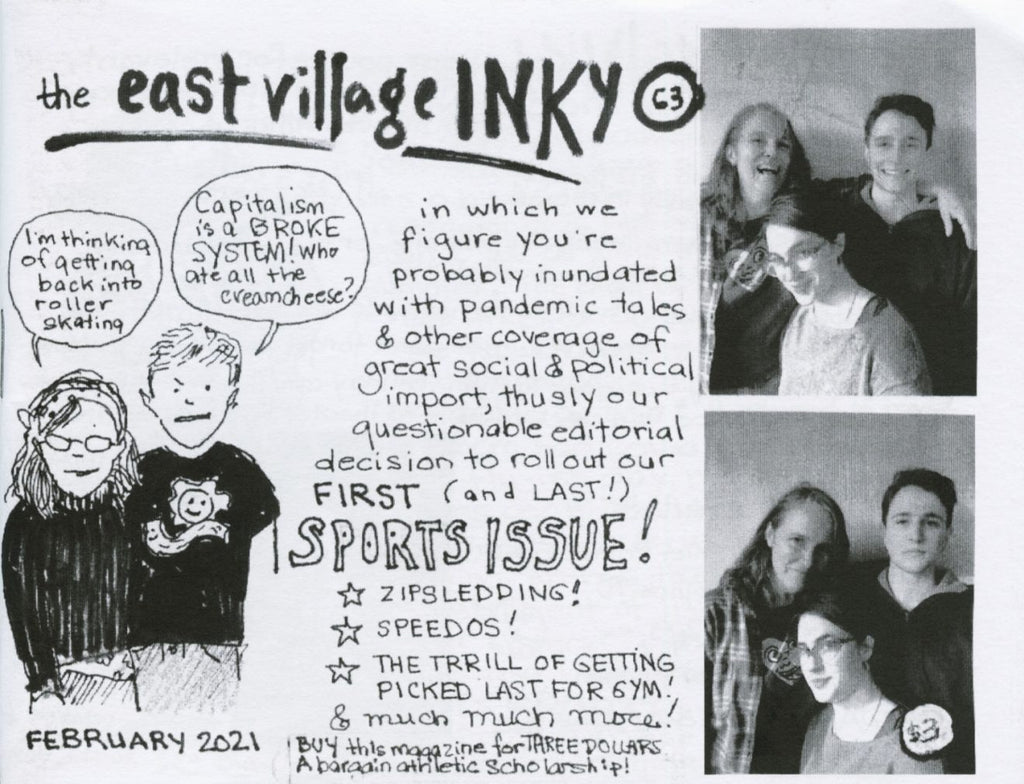 the east village INKY 63
I'm thinking
of getting
back into
roller
skating
Capitalism
is a BROKE
SYSTEM! Who
ate all the
creamcheese?
in which we
figure you're
probably inundated
with pandemic tales
& other coverage of
great social & political
import, thusly our
questionable editorial
decision to roll out our
FIRST (and LAST!)
SPORTS ISSUE!
☆ ZIPSLEDDING!
☆ SPEEDOS!
☆ THE TRRILL OF GETTING
PICKED LAST FOR GYM!
& much much more!
FEBRUARY 2021
BUY this magazine for THREE DOLLARS
A bargain athletic scholarship!
$3